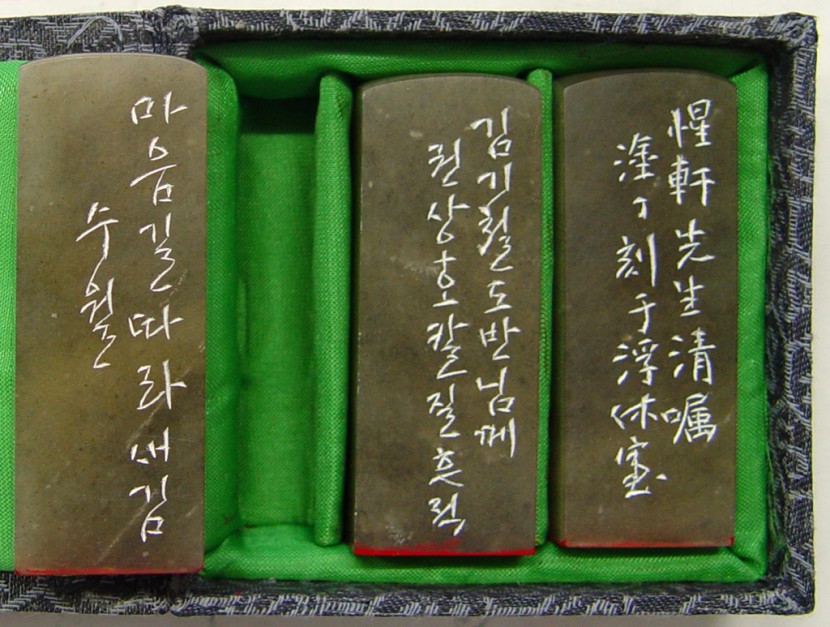 惺軒先生清囑
塗丁刻于浮休室
김기철도반님께
권상호칼질흔적
마음길따라새김
수월